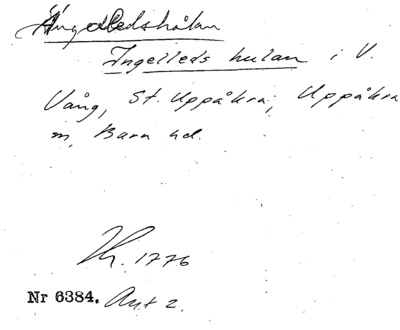 Ängelledshålan
Ingelleds hulan i V.
Vång, St. Uppåkra, Uppåkra
m, Bara hd.
Kh. 1776
Nr 6384. Akt 2.